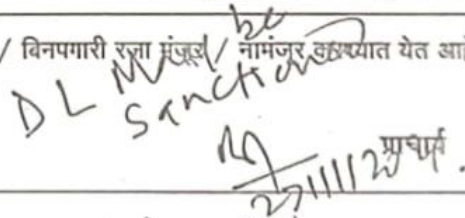 / विनपगारी रजा मंजूर / नामंजूर करण्यात येत आहे
DL may be
Sanctioned
प्राचार्य